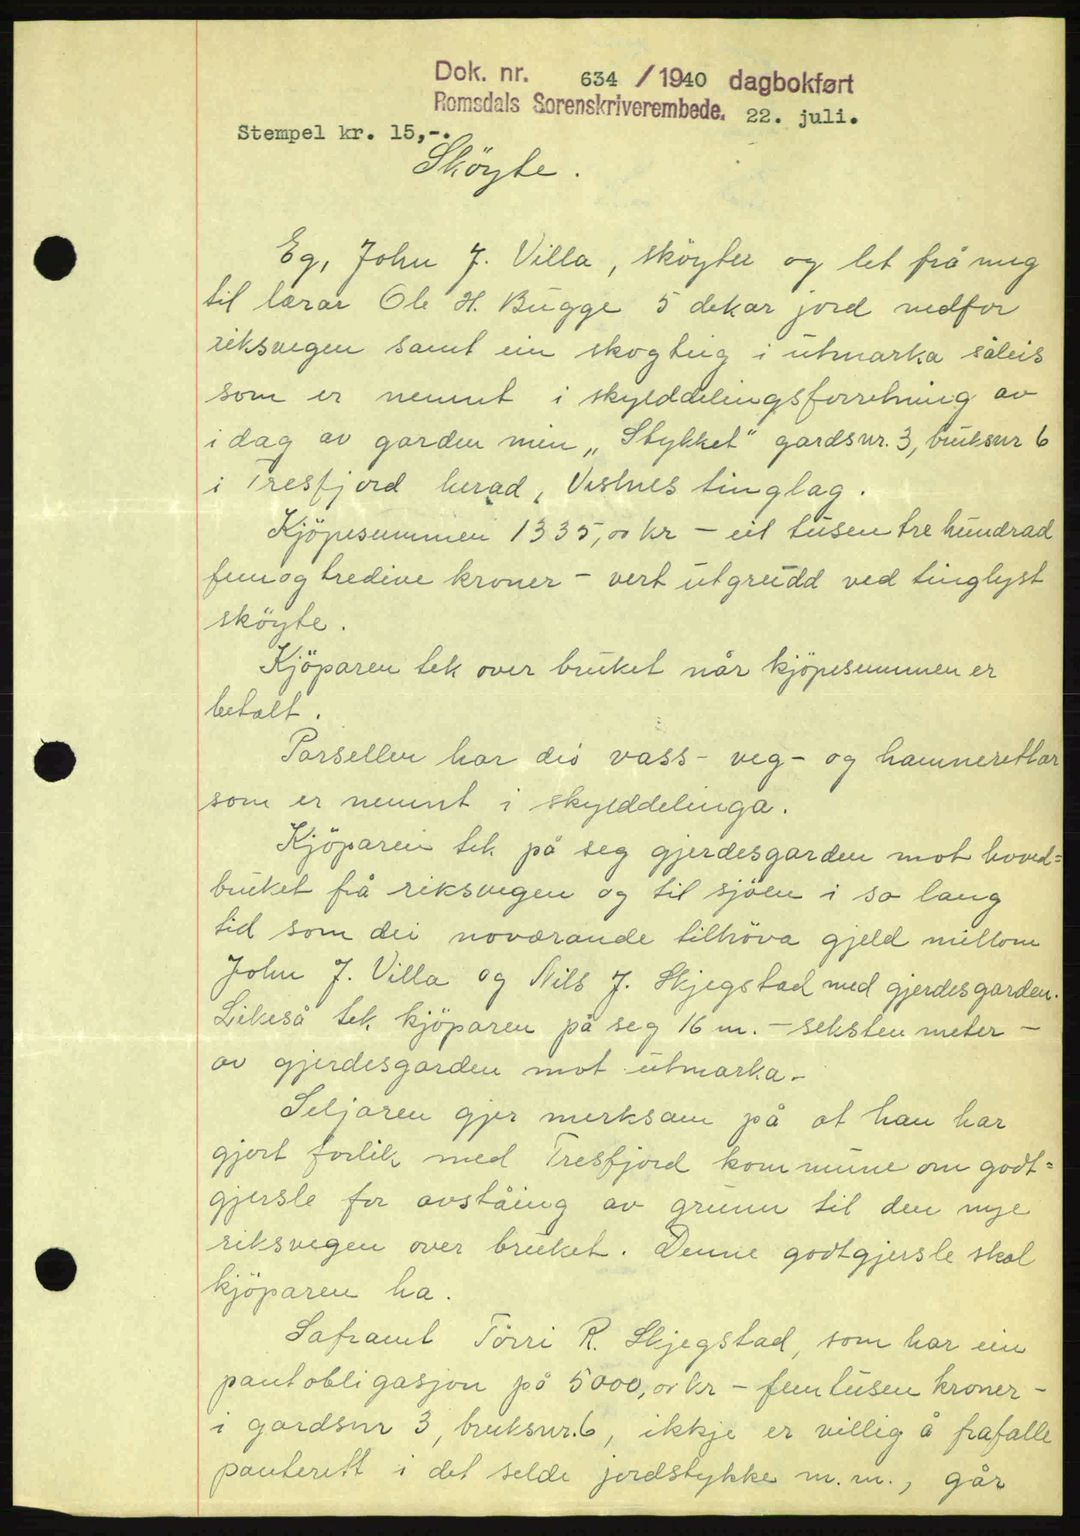 Dok. nr. 634 / 1940 dagbokført
Romsdals Sorenskriverembede. 22. juli.
Stempel kr. 15,-.
Sköyte.
Eg, John J. Villa, sköyter og let frå meg
til lærar Ole H. Bugge 5 dekar jord nedfor
riksvegen samt ein skogteig i utmarka såleis
som er nemnt i skylddelingsforretning av
i dag av garden min „Stykket" gardsnr. 3, bruksnr 6
i Tresfjord herad, Vestnes tinglag.
Kjöpesummen 1335,00 kr – eit tusen tre hundrad
fem og tredive kroner – vert utgreidd ved tinglyst
sköyte.
Kjöparen tek over bruket når kjöpesummen er
betalt.
Parsellen har dei vass- veg- og hamnerettar
som er nemnt i skylddelinga.
Kjöparen tek på seg gjerdesgarden mot hoved=
bruket frå riksvegen og til sjöen i so lang
tid som dei noverande tilhöva gjeld millom
John J. Villa og Nils J. Skjegstad med gjerdesgarden.
Likeså tek kjöparen på seg 16 m. – seksten meter –
av gjerdesgarden mot utmarka.
Seljaren gjer merksam på at han har
gjort forlik med Tresfjord kommune om godt=
gjersle for avståing av grunn til den nye
riksvegen over bruket. Denne godtgjersle skal
kjöparen ha.
Saframt Törri R. Skjegstad, som har ein
pantobligasjon på 5000,00 kr – fem tusen kroner –
i gardsnr 3, bruksnr. 6, ikkje er villig å frafalle
panterett i det selde jordstykke m.m., går